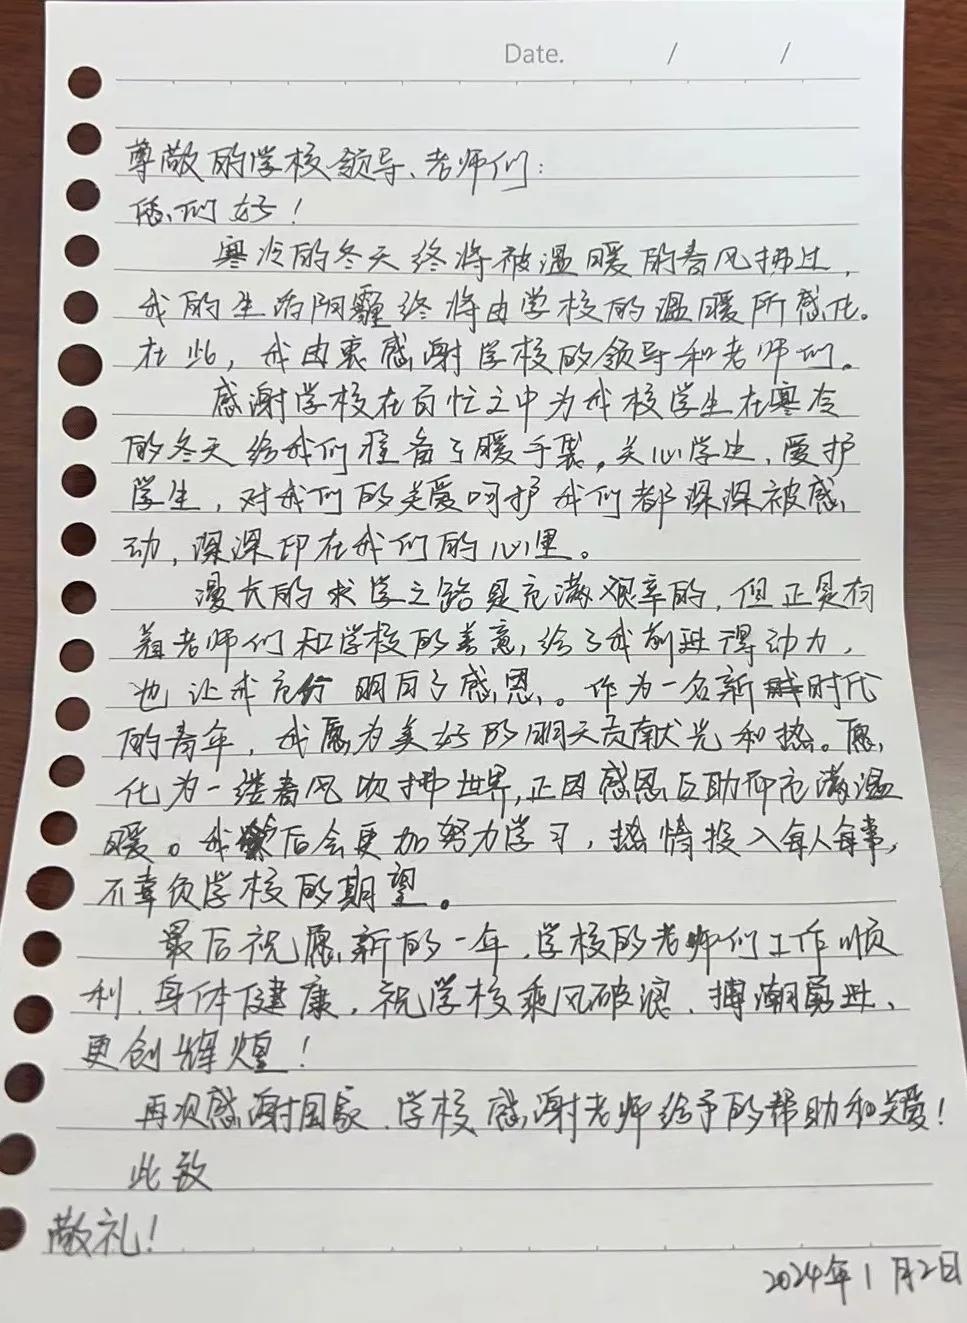 Date. / /
尊敬的学校领导、老师们:
您们好!
寒冷的冬天终将被温暖的春风拂过,
我的生活阴霾终将由学校的温暖所感化。
在此,我由衷感谢学校的领导和老师们。
感谢学校在百忙之中为我校学生在寒冷
的冬天给我们准备了暖手袋。关心学生、爱护
学生,对我们的关爱呵护我们都深深被感
动,深深印在我们的心里。
漫长的求学之路是充满艰辛的,但正是有
着老师们和学校的善意,给了我前进得动力,
也让我充分明白了感恩。作为一名新时代
的青年,我愿为美好的明天贡献光和热。愿
化为一缕春风吹拂世界,正因感恩互助而充满温
暖。我后会更加努力学习,热情投入每人每事,
不辜负学校的期望。
最后祝愿新的一年,学校的老师们工作顺
利、身体健康,祝学校乘风破浪、搏潮勇进、
更创辉煌!
再次感谢国家、学校,感谢老师给予的帮助和关爱!
此致
敬礼!
2024年1月2日